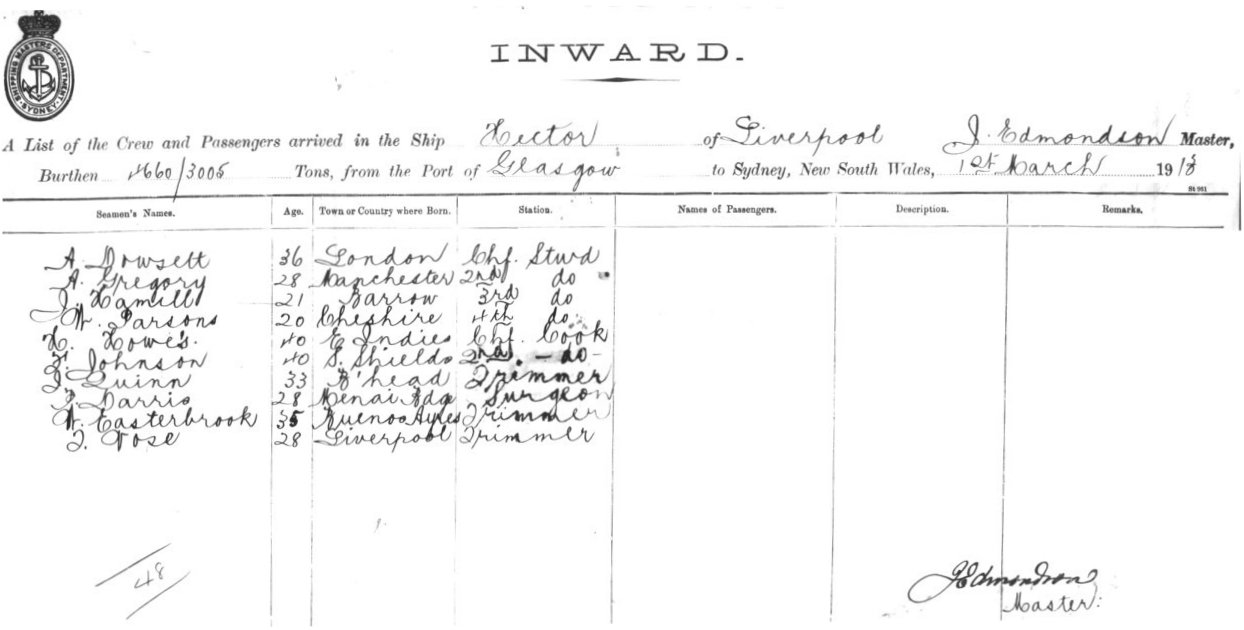 SHIPPING MASTERS DEPARTMENT. SYDNEY
INWARD.
A List of the Crew and Passengers arrived in the Ship Hector of Liverpool J. Edmondson Master,
Burthen 4660/3005 Tons, from the Port of Glasgow to Sydney, New South Wales, 1st March 1913
St 961
Seamen's Names. Age. Town or Country where Born. Station. Names of Passengers. Description. Remarks.
A. Dowsett 36 London Chf. Stwd
A. Gregory 28 Manchester 2nd do
J. Hamill 21 Barrow 3rd do
W. Parsons 20 Cheshire 4th do
H. Howes. 40 E Indies Chf. Cook
Johnson 40 S. Shields 2nd. - do -
J. Quinn 33 B'head Trimmer
28 Menai Bdge Surgeon
W. Easterbrook 35 Buenos Ayres Trimmer
T. Vose 28 Liverpool Trimmer
48
J Edmondson
Master: